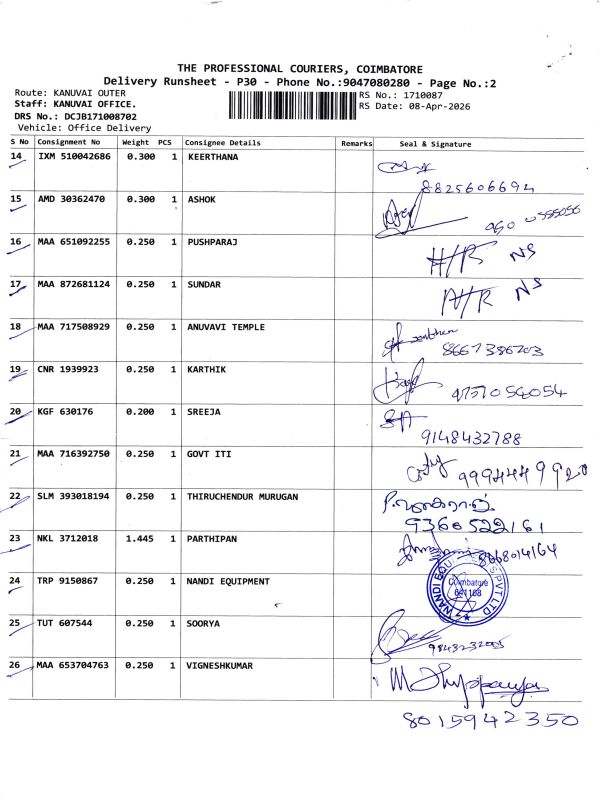 THE PROFESSIONAL COURIERS, COIMBATORE
Delivery Runsheet - P30 - Phone No.:9047080280 - Page No.:2
Route: KANUVAI OUTER
Staff: KANUVAI OFFICE.
DRS No.: DCJB171008702
Vehicle: Office Delivery
RS No.: 1710087
RS Date: 08-Apr-2026
S No Consignment No Weight PCS Consignee Details Remarks Seal & Signature
14 IXM 510042686 0.300 1 KEERTHANA
8825606694
15 AMD 30362470 0.300 1 ASHOK
16 MAA 651092255 0.250 1 PUSHPARAJ H/R NS
17 MAA 872681124 0.250 1 SUNDAR N/R NS
18 MAA 717508929 0.250 1 ANUVAVI TEMPLE
8667386703
19 CNR 1939923 0.250 1 KARTHIK
20 KGF 630176 0.200 1 SREEJA
9148432788
21 MAA 716392750 0.250 1 GOVT ITI
9994449920
22 SLM 393018194 0.250 1 THIRUCHENDUR MURUGAN
9360522161
23 NKL 3712018 1.445 1 PARTHIPAN
8668014164
24 TRP 9150867 0.250 1 NANDI EQUIPMENT
NANDI EQUIPMENTS PVT LTD
Coimbatore
641108
25 TUT 607544 0.250 1 SOORYA
9843232005
26 MAA 653704763 0.250 1 VIGNESHKUMAR
8015942350